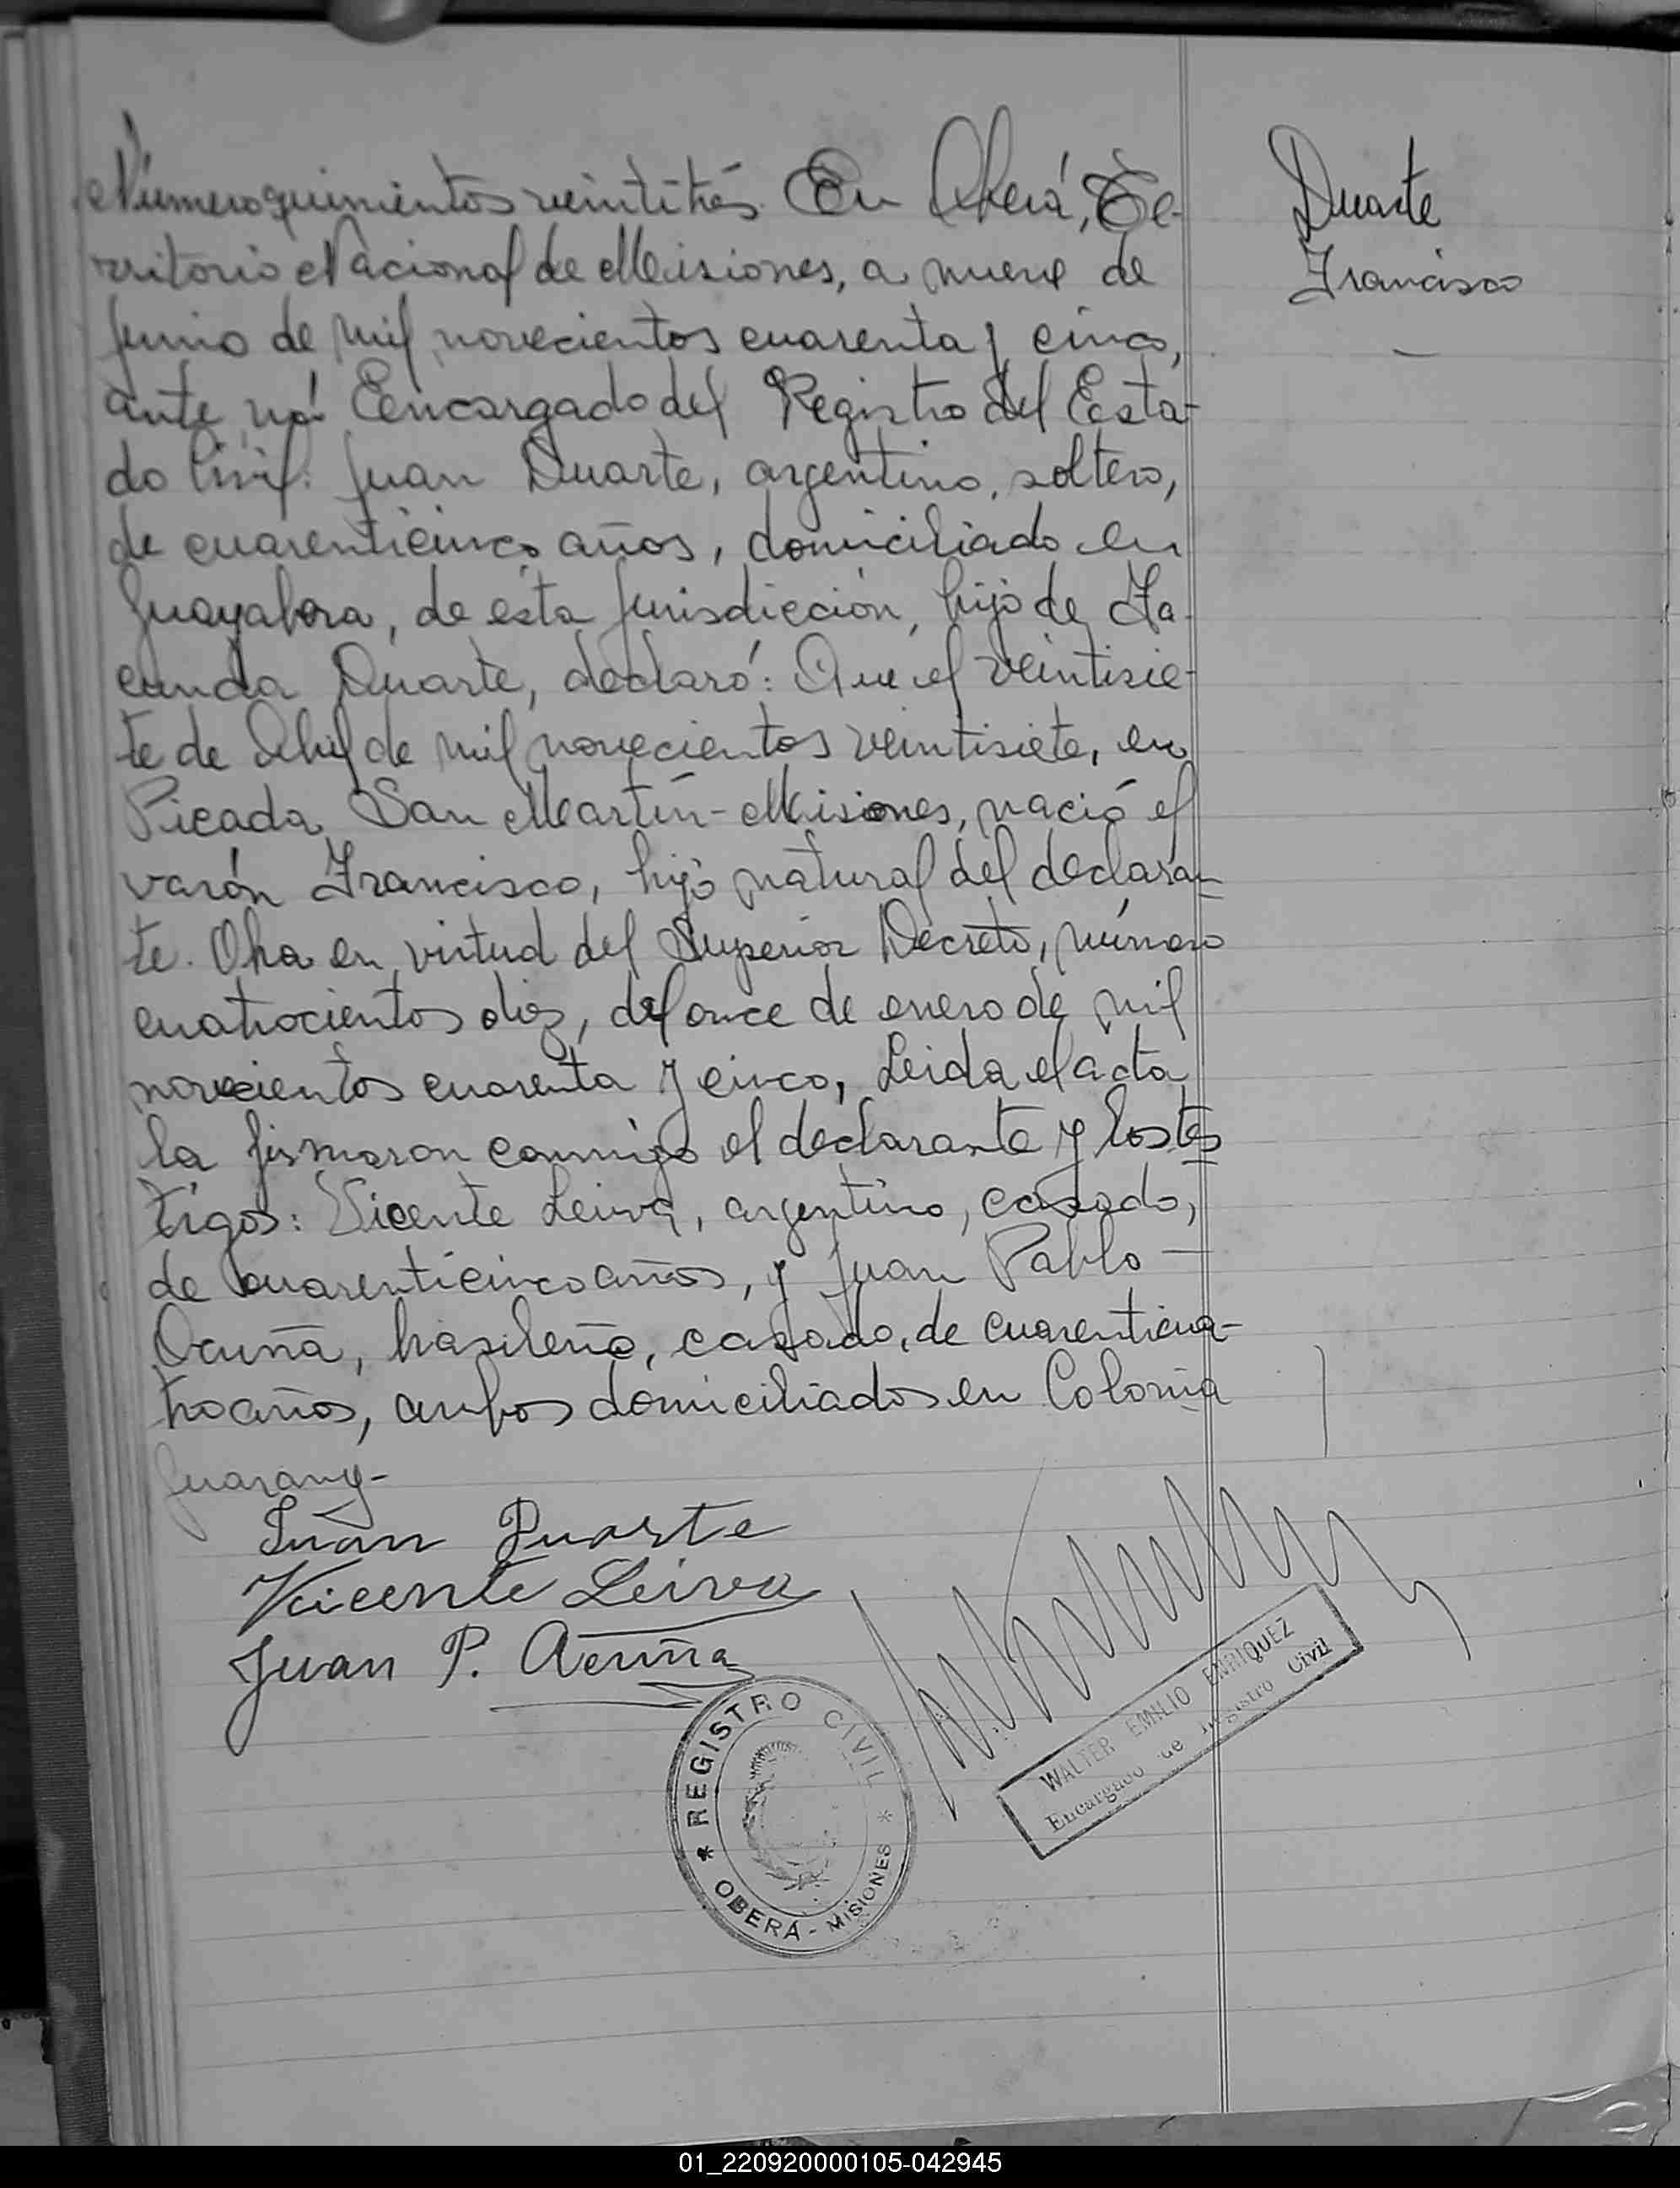 Número quinientos veintitrés. En Oberá, Te-
rritorio Nacional de Misiones, a nueve de
junio de mil novecientos cuarenta y cinco,
ante mí Encargado del Registro del Esta-
do Civil: Juan Duarte, argentino, soltero,
de cuarenticinco años, domiciliado en
Guayabera, de ésta jurisdicción, hijo de Fa-
cunda Duarte, declaró: Que el veintisie-
te de Abril de mil novecientos veintisiete, en
Picada San Martín-Misiones, nació el
varón Francisco, hijo natural del declaran-
te. Obra en virtud del Superior Decreto, número
cuatrocientos diez, del once de enero de mil
novecientos cuarenta y cinco, Leida el acta
la firmaron conmigo el declarante y los tes
tigos: Vicente Leiva, argentino, casado,
de cuarenticinco años, y Juan Pablo
Acuña, brasileño, casado, de cuarenticua-
tro años, ambos domiciliados en Colonia
Guarany-
Duarte
Francisco
Juan Duarte
Vicente Leiva
Juan P. Acuña
* REGISTRO CIVIL *
OBERÁ - MISIONES
WALTER EMILIO ENRIQUEZ
Encargado de Registro Civil
01_220920000105-042945